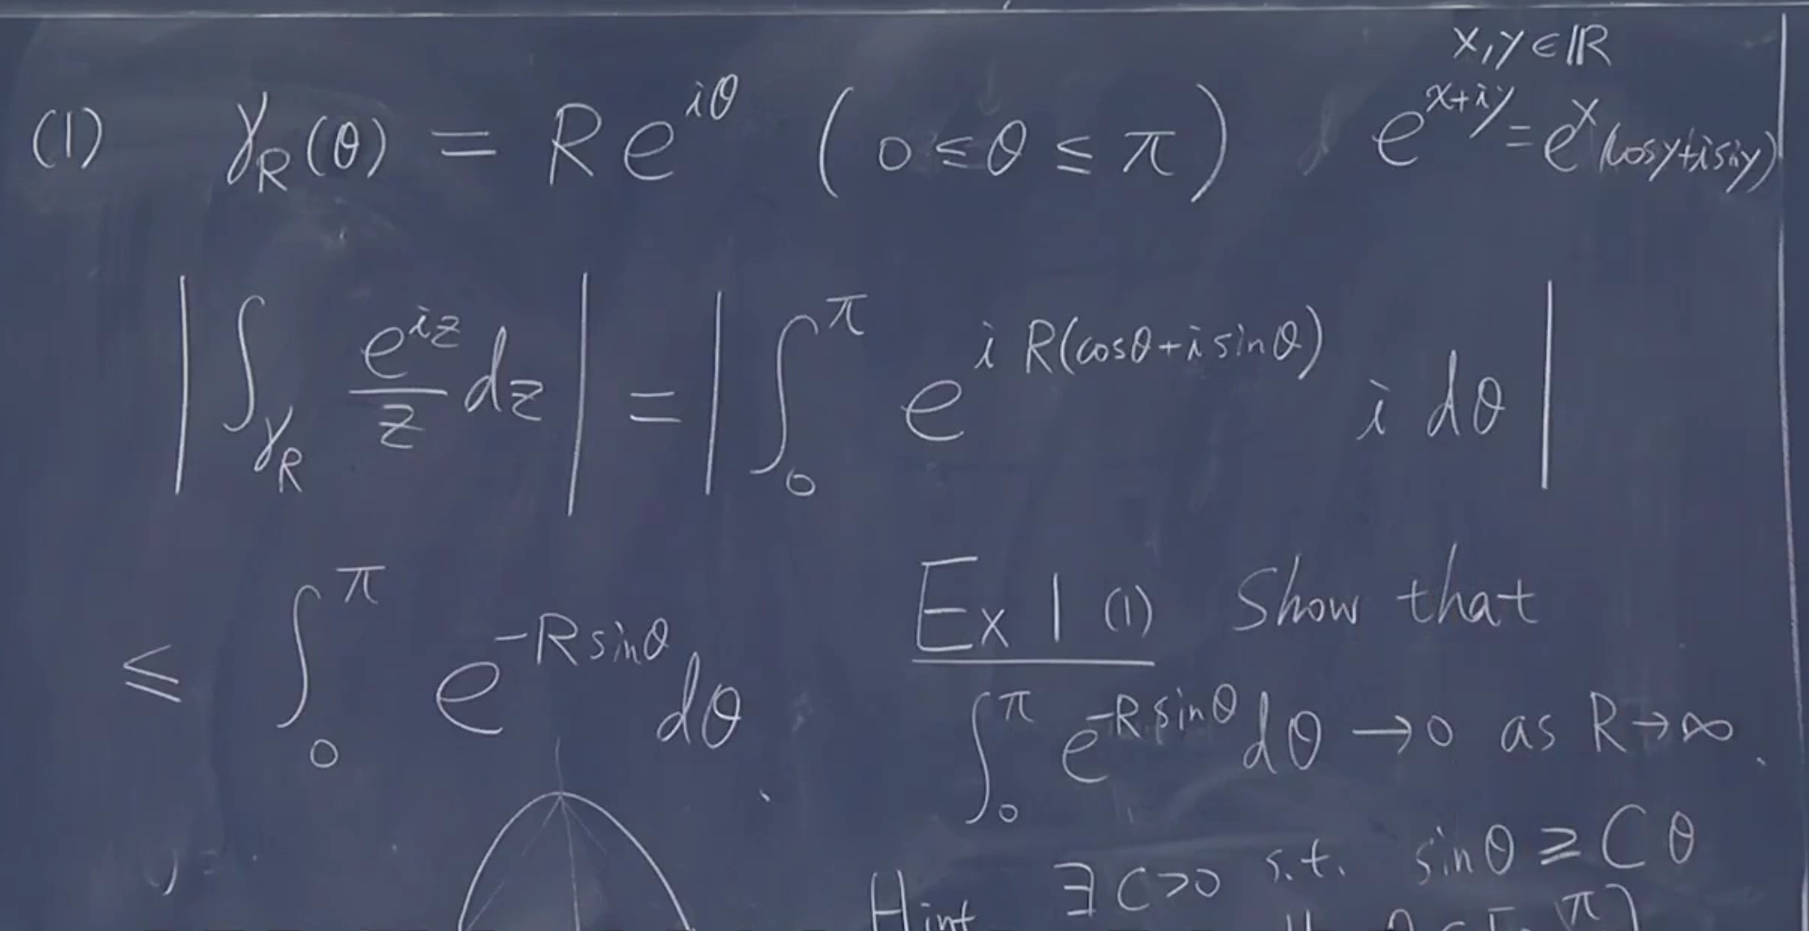 x,y∈ℝ
(1) γ_R(θ) = Re^{iθ} (0≤θ≤π) e^{x+iy}=e^x(cosy+isiny)
|∫_{γ_R} \frac{e^{iz}}{z} dz| = |∫_0^π e^{iR(cosθ+isinθ)} i dθ|
≤ ∫_0^π e^{-Rsinθ} dθ
Ex 1 (1) Show that
∫_0^π e^{-Rsinθ} dθ → 0 as R→∞.
Hint ∃C>0 s.t. sinθ ≥ Cθ